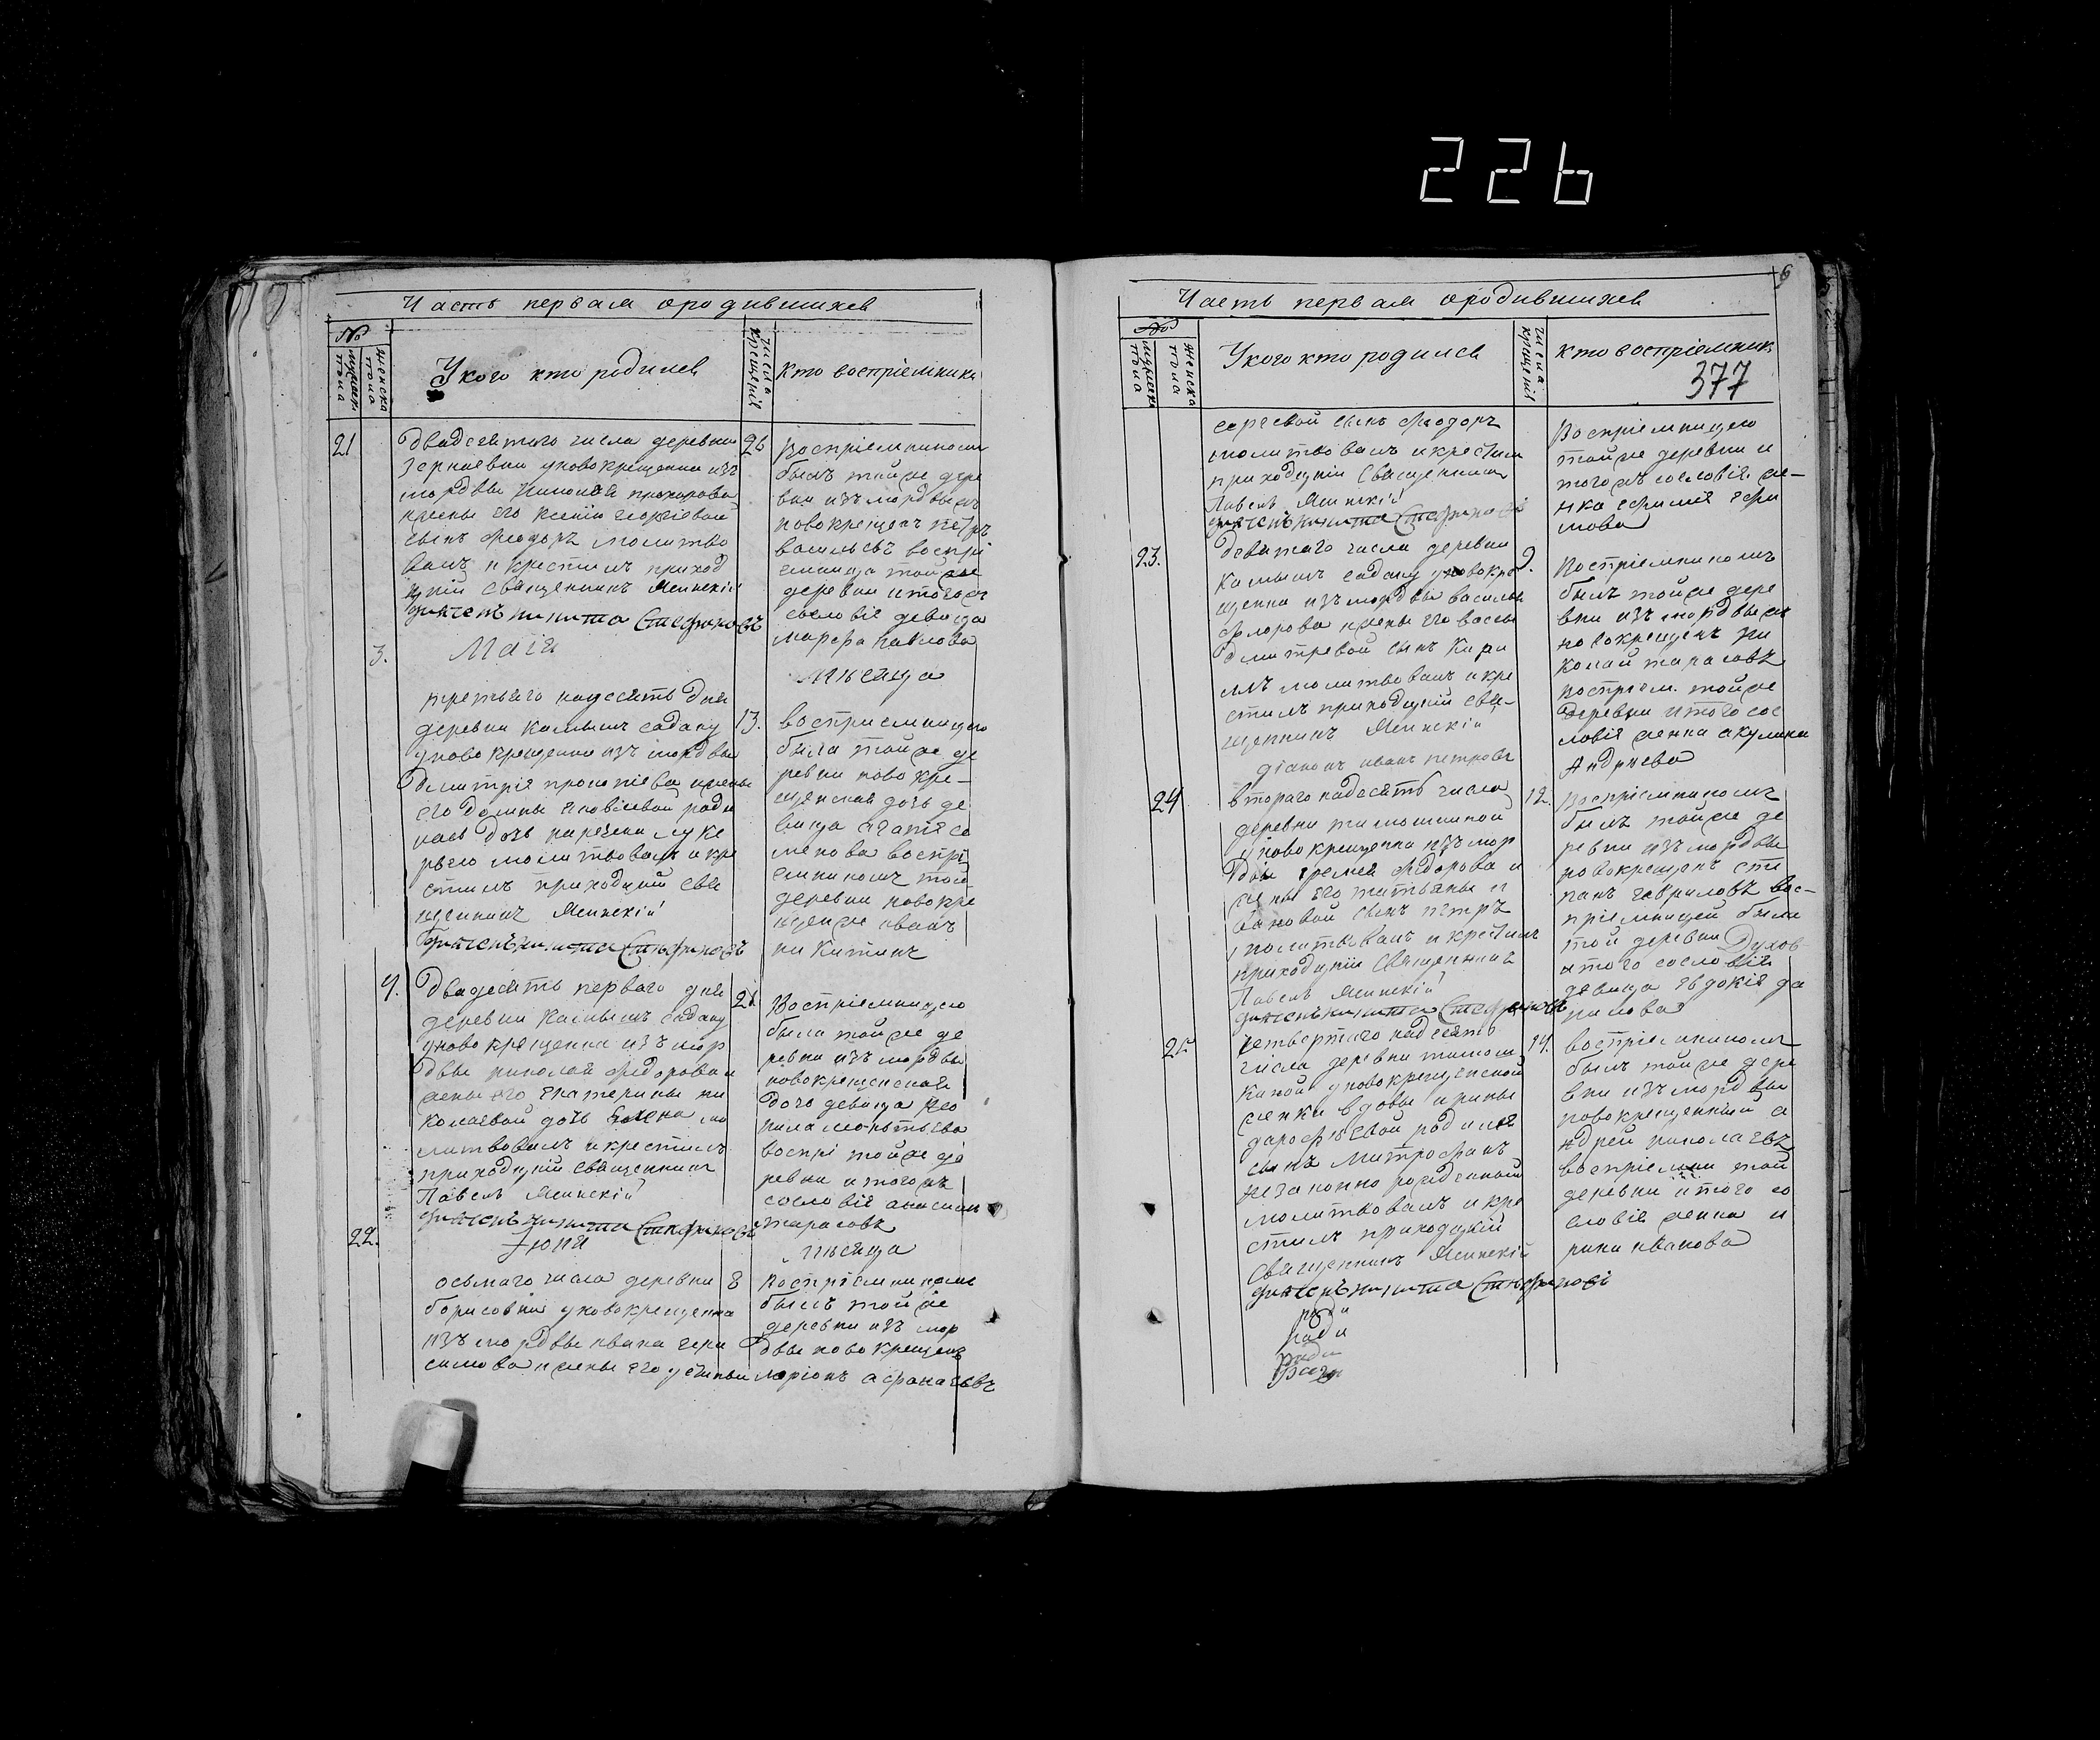 226
Часть первая о родившихся
№
мужеска пола
женска пола
У кого кто родился
числа крещенія
Кто воспріемники
21
Двадсятого числа деревни
новокрещенна изъ
мордвы прохорова
жены его Ксеніи георгіевой
сынъ Феодоръ молитво
валъ и крестилъ приход
скій священникъ Ясинскій
дьяконъ никита Стефановъ
26
Воспріемникомъ
былъ той же дере
вни изъ мордвы
новокрещенъ петръ
васильевъ воспрі
емница той же
деревни и того ж
сословія девица
марфа павлова
Маія
мѣсяца
3.
третьяго надесять дня
деревни Камышъ садаку
у новокрещенна изъ мордвы
Димитрія прокопіева и жены
его домны яковлевой роди
лась дочь наречена луке
рьею молитвовалъ и кре
стилъ приходскій свя
щенникъ Ясинскій
дьяконъ никита Стефановъ
13.
воспріемницею
была той же де
ревни новокре-
щенская дочь де
вица агапія се
менова воспрі
емникомъ той
деревни новокре
щен же иванъ
никитинъ
4.
Двадесять перваго дня
деревни Камышъ садаку
у новокрещенна изъ мор
двы николая Федорова и
жены его Екатерины ни
колаевой дочь Елена мо
литвовалъ и крестилъ
приходскій священникъ
Павелъ Ясинскій
дьяконъ никита Стефановъ
21.
Воспріемницею
была той же де
ревни изъ мордвы
новокрещенская
дочь девица
воспрі той же де
ревни и того жъ
сословія
тарасовъ
Іюня
мѣсяца
22.
осьмаго числа деревни
борисовки у новокрещенна
изъ мордвы ивана гера
симова и жены его устиньи
8
Воспріемникомъ
былъ той же
деревни изъ мор
двы новокрещенъ
ларіонъ афанасьевъ
6
Часть первая о родившихся
№
мужеска пола
женска пола
У кого кто родился
числа крещенія
Кто воспріемники
377
сергеевой сынъ Феодоръ
молитвовалъ и крестилъ
приходскій Священникъ
Павелъ Ясинскій
дьяконъ никита Стефановъ
Воспріемницею
той же деревни и
того жъ сословія же-
нка
23.
Девятаго числа деревни
Камышъ садаку у новокре
щенна изъ мордвы василья
флорова и жены его
дмитревой сынъ Кири
лъ молитвовалъ и кре
стилъ приходскій свя-
щенникъ Ясинскій
діаконъ иванъ петровъ
9.
Воспріемникомъ
былъ той же дере
вни изъ мордвы же
новокрещенъ ни
колай тарасовъ
воспріем. той же
деревни и того сос
ловія женка акулина
Андреева
24
втораго надесять числа
деревни тимошкиной
у новокрещенна изъ мор
двы еремея Федорова и
жены его татьяны и
вановой сынъ петръ
молитвовалъ и крестилъ
приходскій Священникъ
Павелъ Ясинскій
дьяконъ никита Стефановъ
12.
Воспріемникомъ
былъ той же де
ревни изъ мордвы
новокрещенъ сте
панъ гавриловъ вос-
пріемницей была
той деревни Духов
и того сословія
девица Евдокія да
нилова
25
четвертаго надесять
числа деревни тимош
киной у новокрещенской
женки вдовы ирины
дорофеевой родился
сынъ Митрофанъ
незаконно рожденной
молитвовалъ и кре
стилъ приходскій
священникъ Ясинскій
дьяконъ никита Стефановъ
14.
воспріемникомъ
былъ той же дере
вни изъ мордвы
новокрещенный а
ндрей николаевъ
воспріемни той
деревни и того со
словія женка и
рина иванова